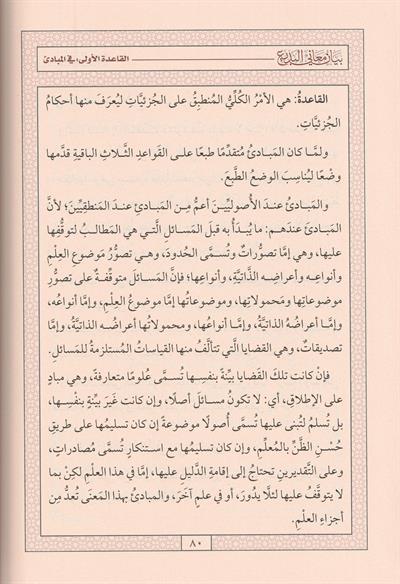 بيان معاني البديع
القاعدة الأولى، في المبادئ
القاعدةُ: هي الأمْرُ الكُلِّيُّ المُنطبِقُ على الجُزئيَّاتِ ليُعرَفَ منها أحكامُ
الجُزئيَّاتِ.
ولمَّا كان المَبادئُ مُتقدِّمًا طبعًا علـى القَواعدِ الثَّلاثِ الباقيةِ قدَّمها
وضْعًا ليُناسِبَ الوضعُ الطَّبعَ.
والمَبادئُ عندَ الأُصوليِّينَ أعمُّ مِـن المَبادئِ عندَ المَنطقِيِّينَ؛ لأنَّ
المَبادئَ عندَهـم: ما يُبدأُ به قبلَ المَسائلِ الَّتـي هي المَطالبُ لتوقُّفِها
عليها، وهي إمَّا تصوُّراتٌ وتُسمَّى الحُدودَ، وهي تصوُّرُ مَوضوعِ العِلْمِ
وأنواعِـه وأعراضِـه الذَّاتيَّةِ، وأنواعِها؛ فإنَّ المَسائلَ متوقِّفةٌ على تصوُّرِ
موضوعاتِها ومَحمولاتِها، وموضوعاتُها إمَّا موضوعُ العِلْمِ، وإمَّا أنواعُه،
وإمَّا أعراضُه الذاتيَّةُ، وإمَّـا أنواعُها، ومحمولاتُها أعراضُه الذاتيَّةُ، وإمَّا
تصديقاتٌ، وهي القضايا الَّتي تتألَّفُ منها القياساتُ المُستلزمةُ للمَسائلِ.
فإنْ كانت تلكَ القَضايا بيِّنةً بنفسِـها تُسمَّى عُلومًا متعارفةً، وهي مبادٍ
على الإطلاقِ، أي: لا تكونُ مسـائلَ أصلًا، وإن كانت غَيرَ بيِّنةٍ بنفْسِـها،
بل تُسلمُ لتُبنى عليها تُسمَّى أُصولًا موضوعةً إن كان تسليمُها على طريقِ
حُسْـنِ الظَّنِّ بالمُعلِّمِ، وإن كان تسليمُها مع استنكارٍ تُسمَّى مُصادراتٍ،
وعلى التَّقديرينِ تحتاجُ إلى إقامةِ الدَّليلِ عليها، إمَّا في هذا العِلْمِ لكنْ بما
لا يتوقَّفُ عليها لئلَّا يدُورَ، أو في علمٍ آخَرَ، والمبادئُ بهذا المَعنَى تُعدُّ مِن
أجزاءِ العِلْمِ.
٨٠